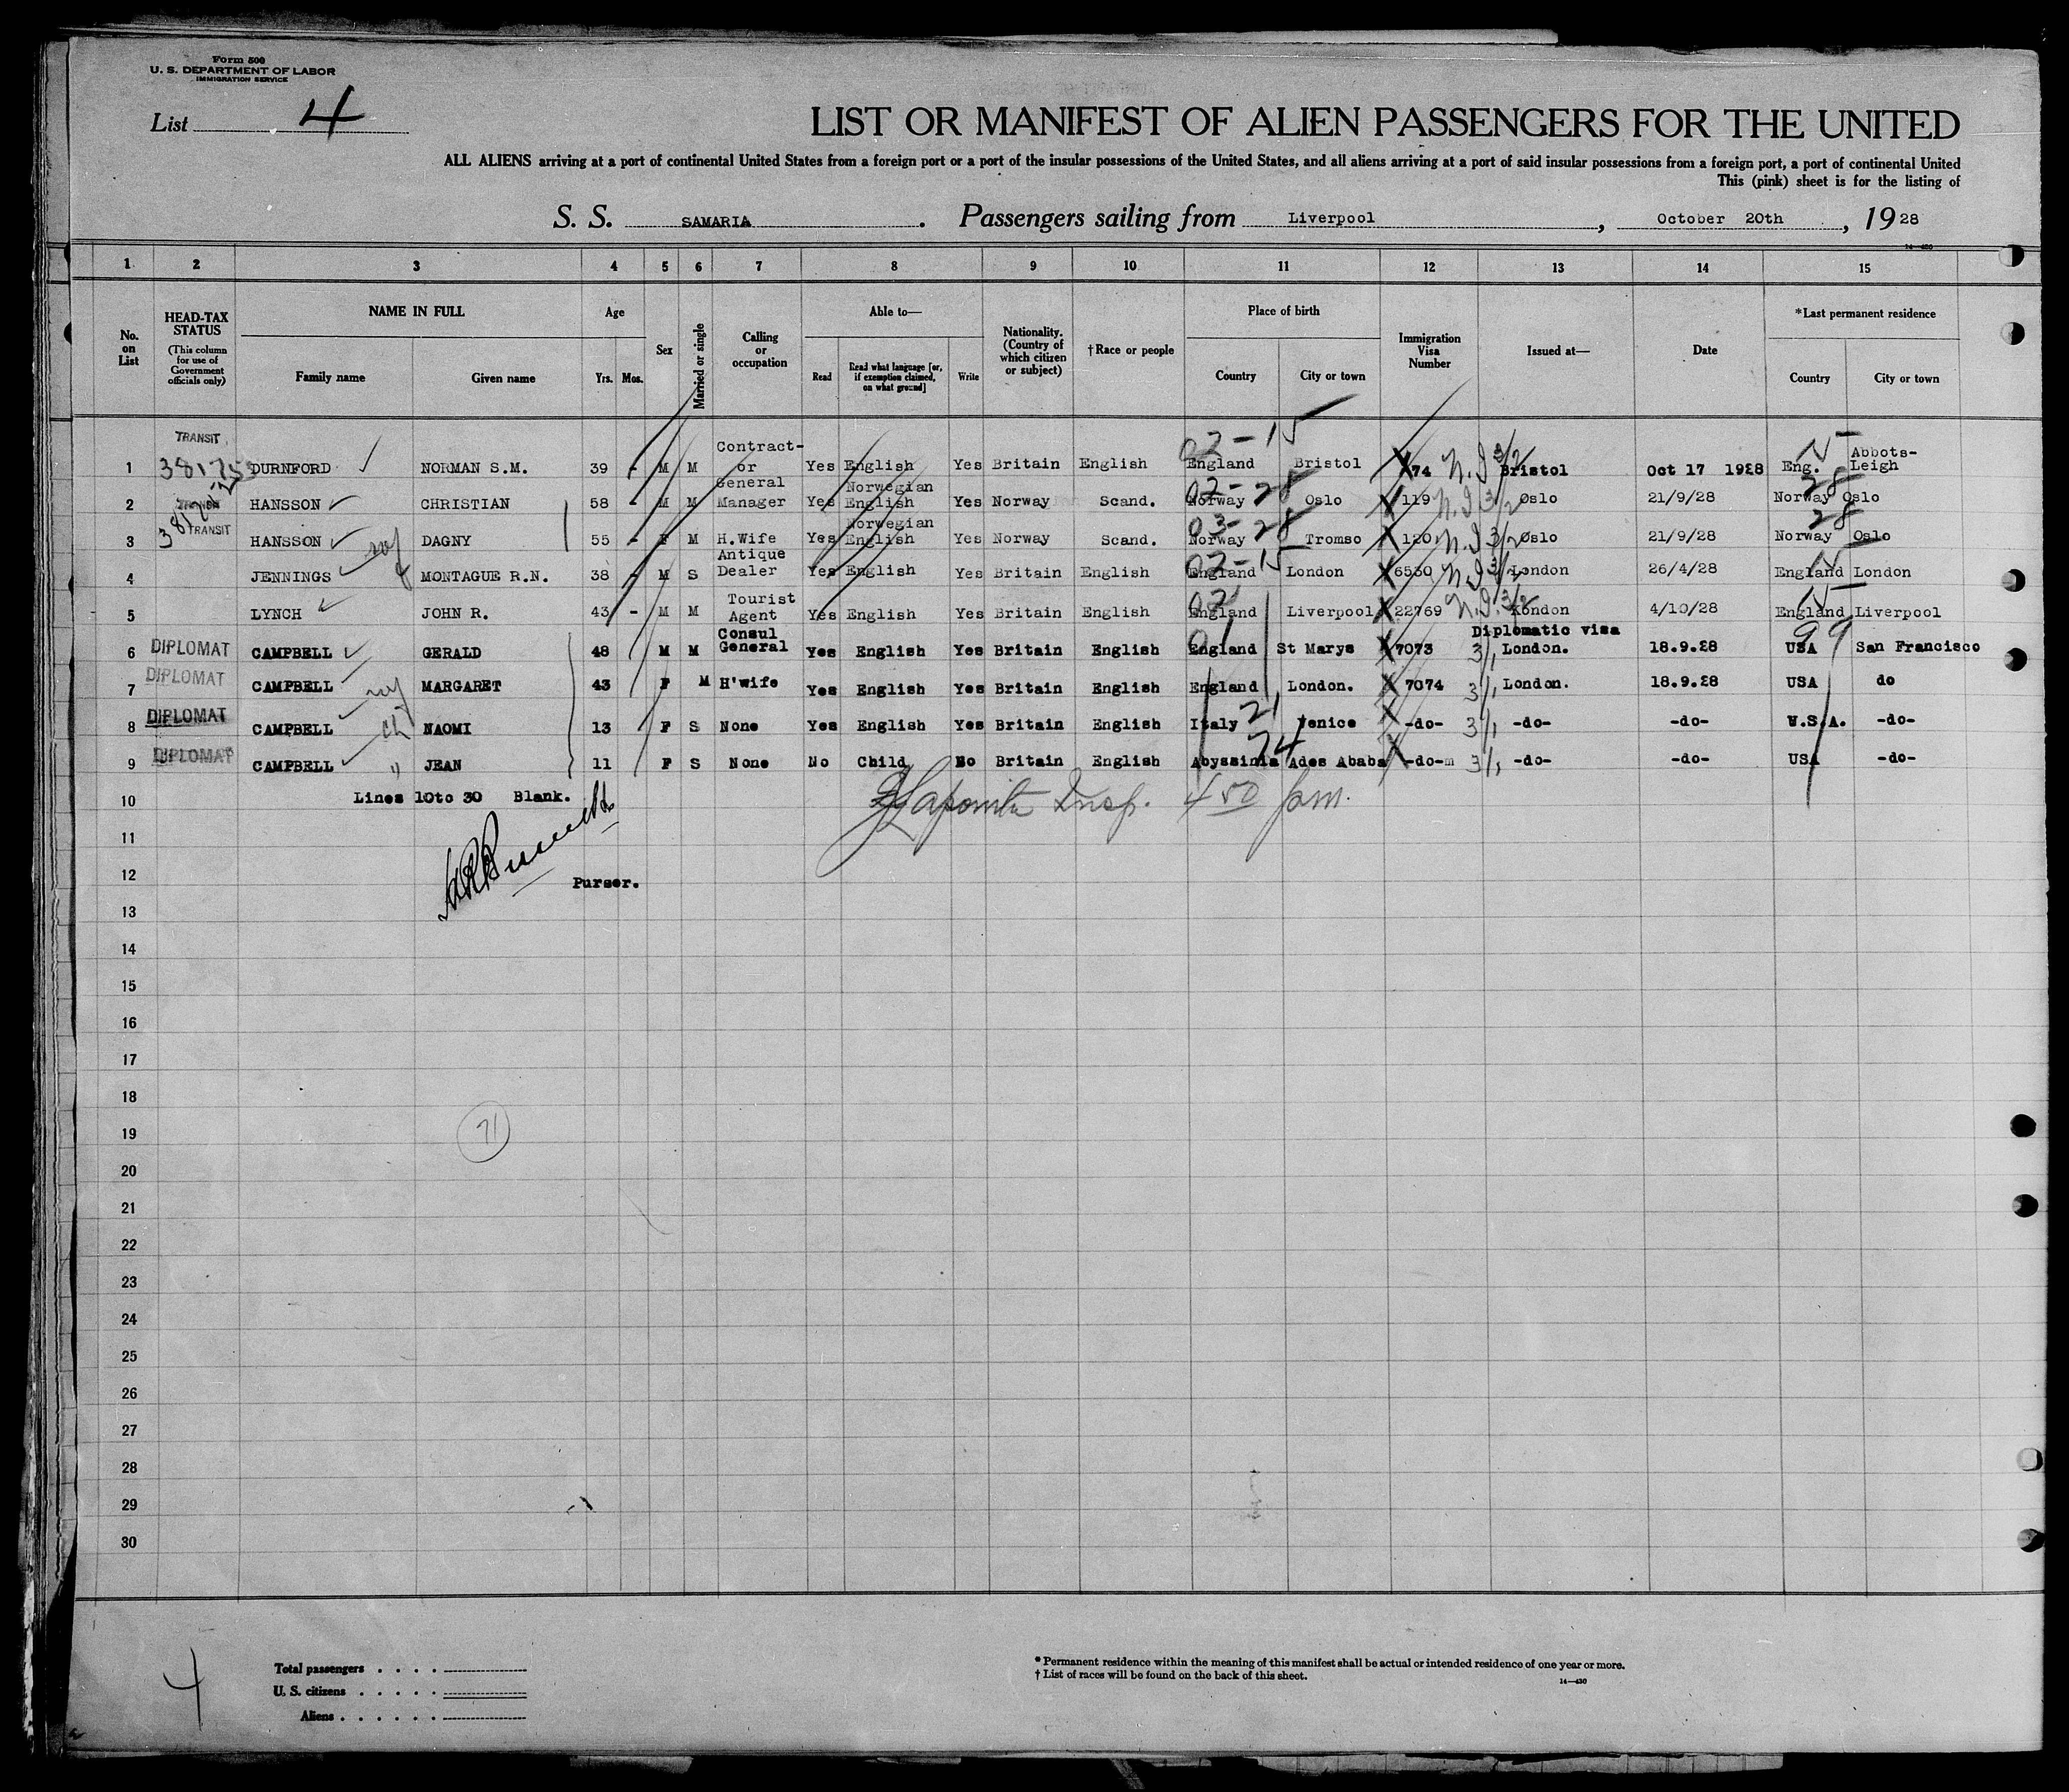 Form 500
U. S. DEPARTMENT OF LABOR
IMMIGRATION SERVICE
List 4
LIST OR MANIFEST OF ALIEN PASSENGERS FOR THE UNITED
ALL ALIENS arriving at a port of continental United States from a foreign port or a port of the insular possessions of the United States, and all aliens arriving at a port of said insular possessions from a foreign port, a port of continental United
This (pink) sheet is for the listing of
S. S. SAMARIA. Passengers sailing from Liverpool, October 20th, 1928
14—430
1 2 3 4 5 6 7 8 9 10 11 12 13 14 15
No. on List
HEAD-TAX STATUS
(This column for use of Government officials only)
NAME IN FULL
Family name Given name
Age
Yrs. Mos.
Sex
Married or single
Calling or occupation
Able to—
Read Read what language [or, if exemption claimed, on what ground] Write
Nationality. (Country of which citizen or subject)
†Race or people
Place of birth
Country City or town
Immigration Visa Number
Issued at—
Date
*Last permanent residence
Country City or town
1 TRANSIT DURNFORD NORMAN S.M. 39 - M M Contract-or Yes English Yes Britain English 02-15 England Bristol 74 N.I 3/2 Bristol Oct 17 1928 Eng. Abbots-Leigh
2 TRANSIT HANSSON CHRISTIAN 58 - M M General Manager Yes Norwegian English Yes Norway Scand. 02-28 Norway Oslo 119 N.I 3/2 Oslo 21/9/28 28 Norway Oslo
3 TRANSIT HANSSON wf DAGNY 55 - F M H.Wife Yes Norwegian English Yes Norway Scand. 03-28 Norway Tromso 120 N.I 3/2 Oslo 21/9/28 28 Norway Oslo
4 JENNINGS MONTAGUE R.N. 38 - M S Antique Dealer Yes English Yes Britain English 02-15 England London 6530 N.I 3/2 London 26/4/28 England London
5 LYNCH JOHN R. 43 - M M Tourist Agent Yes English Yes Britain English 02 England Liverpool 22769 N.I. 3/2 London 4/10/28 England Liverpool
6 DIPLOMAT CAMPBELL GERALD 48 M M Consul General Yes English Yes Britain English 01 England St Marys 7073 3/1 Diplomatic visa London. 18.9.28 99 USA San Francisco
7 DIPLOMAT CAMPBELL wf MARGARET 43 F M H'wife Yes English Yes Britain English England London. 7074 3/1 London. 18.9.28 USA do
8 DIPLOMAT CAMPBELL ch NAOMI 13 F S None Yes English Yes Britain English Italy 21 Venice -do- 3/1 -do- -do- U.S.A. -do-
9 DIPLOMAT CAMPBELL " JEAN 11 F S None No Child No Britain English Abyssinia 74 Ades Ababa -do- 3/1 -do- -do- USA -do-
10 Lines 10to 30 Blank. Insp. 4 50 pm.
11
12 Purser.
13
14
15
16
17
18
19 71
20
21
22
23
24
25
26
27
28
29
30
4
Total passengers
U. S. citizens
Aliens
* Permanent residence within the meaning of this manifest shall be actual or intended residence of one year or more.
† List of races will be found on the back of this sheet.
14—430